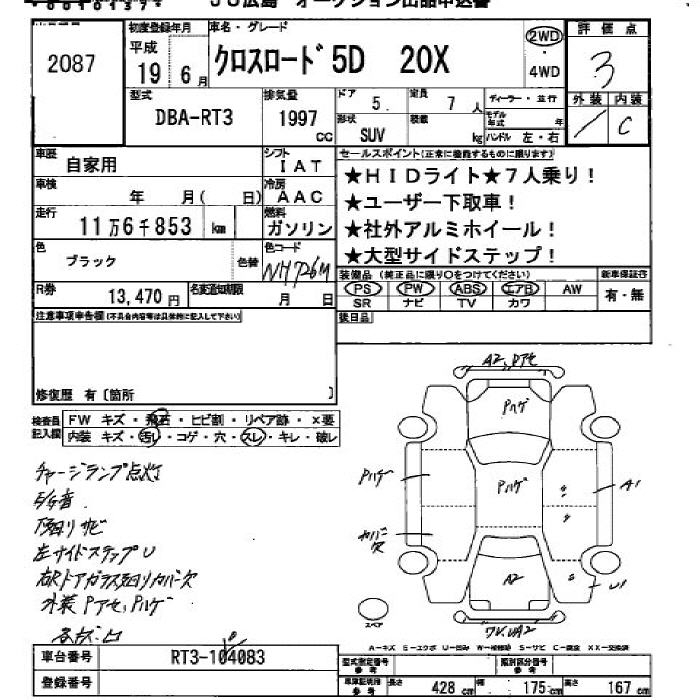 JU広島 オークション出品申込書
2087
初度登録年月
平成
19 6月
車名・グレード
クロスロード 5D 20X
2WD
4WD
評価点
3
外装 内装
C
型式
DBA-RT3
排気量
1997
cc
ドア
5
定員
7 人
形状
SUV
積載
kg
ディーラー・並行
モデル年式 年
ハンドル 左・右
車歴
自家用
シフト
IAT
車検
年 月( 日)
冷房
AAC
走行
11万6千853 km
燃料
ガソリン
色
ブラック
色替
色コード
NH726M
R券
13,470円
名変通知期限
月 日
セールスポイント(正常に機能するものに限ります)
★HIDライト★7人乗り!
★ユーザー下取車!
★社外アルミホイール!
★大型サイドステップ!
装備品(純正品に限り○をつけてください)
新車保証書
PS PW ABS エアB AW
有・無
SR ナビ TV カワ
後日品
注意事項申告欄(不具合内容等は具体的に記入して下さい)
修復歴 有〔箇所 〕
検査員記入欄
FW キズ・飛石・ヒビ割・リペア跡・×要
内装 キズ・汚れ・コゲ・穴・スレ・キレ・破レ
チャージランプ点灯
下回リサビ
左サイドステップU
外装Pアセ、Pハゲ
A2、Pアセ
Pハゲ
Pハゲ
Pハゲ
A1
カバー欠
A2
U1
スペア
A-キズ E-エクボ U-凹み W-補修跡 S-サビ C-腐食 XX-交換済
車台番号
RT3-104083
登録番号
型式指定番号 参考
類別区分番号 参考
車庫証明用 参考
長さ 428 cm
幅 175 cm
高さ 167 cm